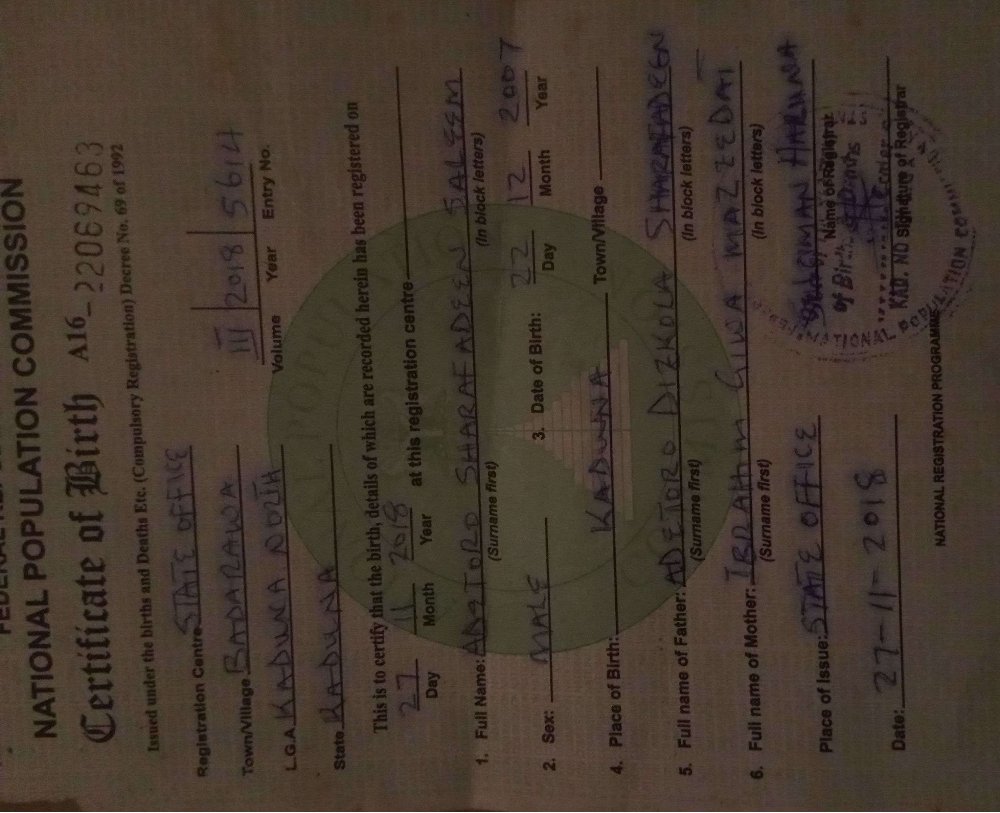 NATIONAL POPULATION COMMISSION
Certificate of Birth A16_22069463
Issued under the births and Deaths Etc. (Compulsory Registration) Decree No. 69 of 1992
Registration Centre STATE OFFICE
Town/Village BADARAWA III 2018 5614
L.G.A. KADUNA NORTH Volume Year Entry No.
State KADUNA
This is to certify that the birth, details of which are recorded herein has been registered on
27 11 2018 at this registration centre
Day Month Year
1. Full Name: SHARAFADEEN SALEEM
(Surname first) (In block letters)
2. Sex: MALE 3. Date of Birth: 22 12 2007
Day Month Year
4. Place of Birth: KADUNA Town/Village
5. Full name of Father: ADETORO DIZKOLA SHARAFADEEN
(Surname first) (In block letters)
6. Full name of Mother: IBRAHIM GIWA
(Surname first) (In block letters)
Place of Issue: STATE OFFICE HARUNA
Name of Registrar
of Birth
Date: 27-11-2018 KAD. ND Signature of Registrar
NATIONAL POPULATION COMMISSION
NATIONAL REGISTRATION PROGRAMME